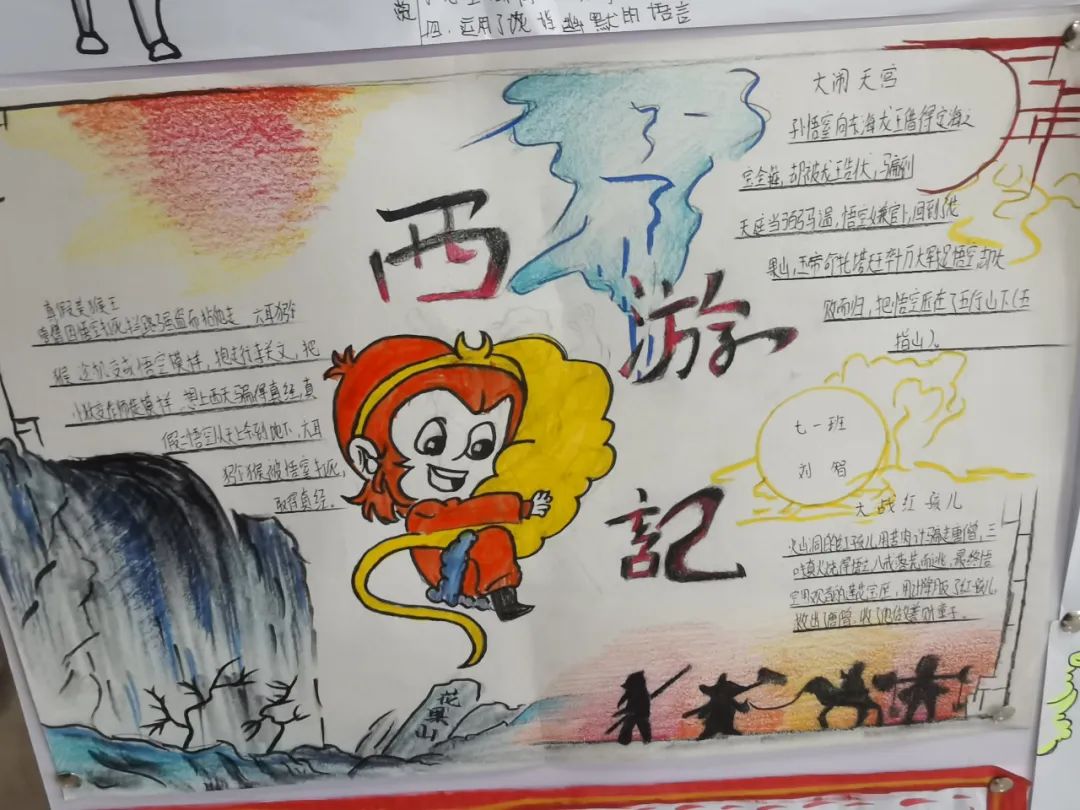 四、运用了诙谐幽默的语言
西
游
記
大闹天宫
孙悟空向东海龙王借得定海之
宝金箍,却被龙王告状,骗到
天庭当弼马温,悟空嫌官小,回到花
果山,玉帝命托塔天王率十万大军捉悟空却大
败而归,把悟空压在了五行山下(五
指山)。
真假美猴王
猴 变成悟空模样,抱走行李关文,把
小妖变作师徒模样,想上西天骗得真经,真
假二悟空从天上杀到地下,六耳
猕猴被悟空打死,
取得真经。
七一班
刘智
大战红孩儿
火山洞的红孩儿用苦肉计骗走唐僧,三
八戒落荒而逃,最终悟
空用观音的莲花宝座,用计降服了红孩儿
救出了唐僧,收了 做善财童子。
花果山